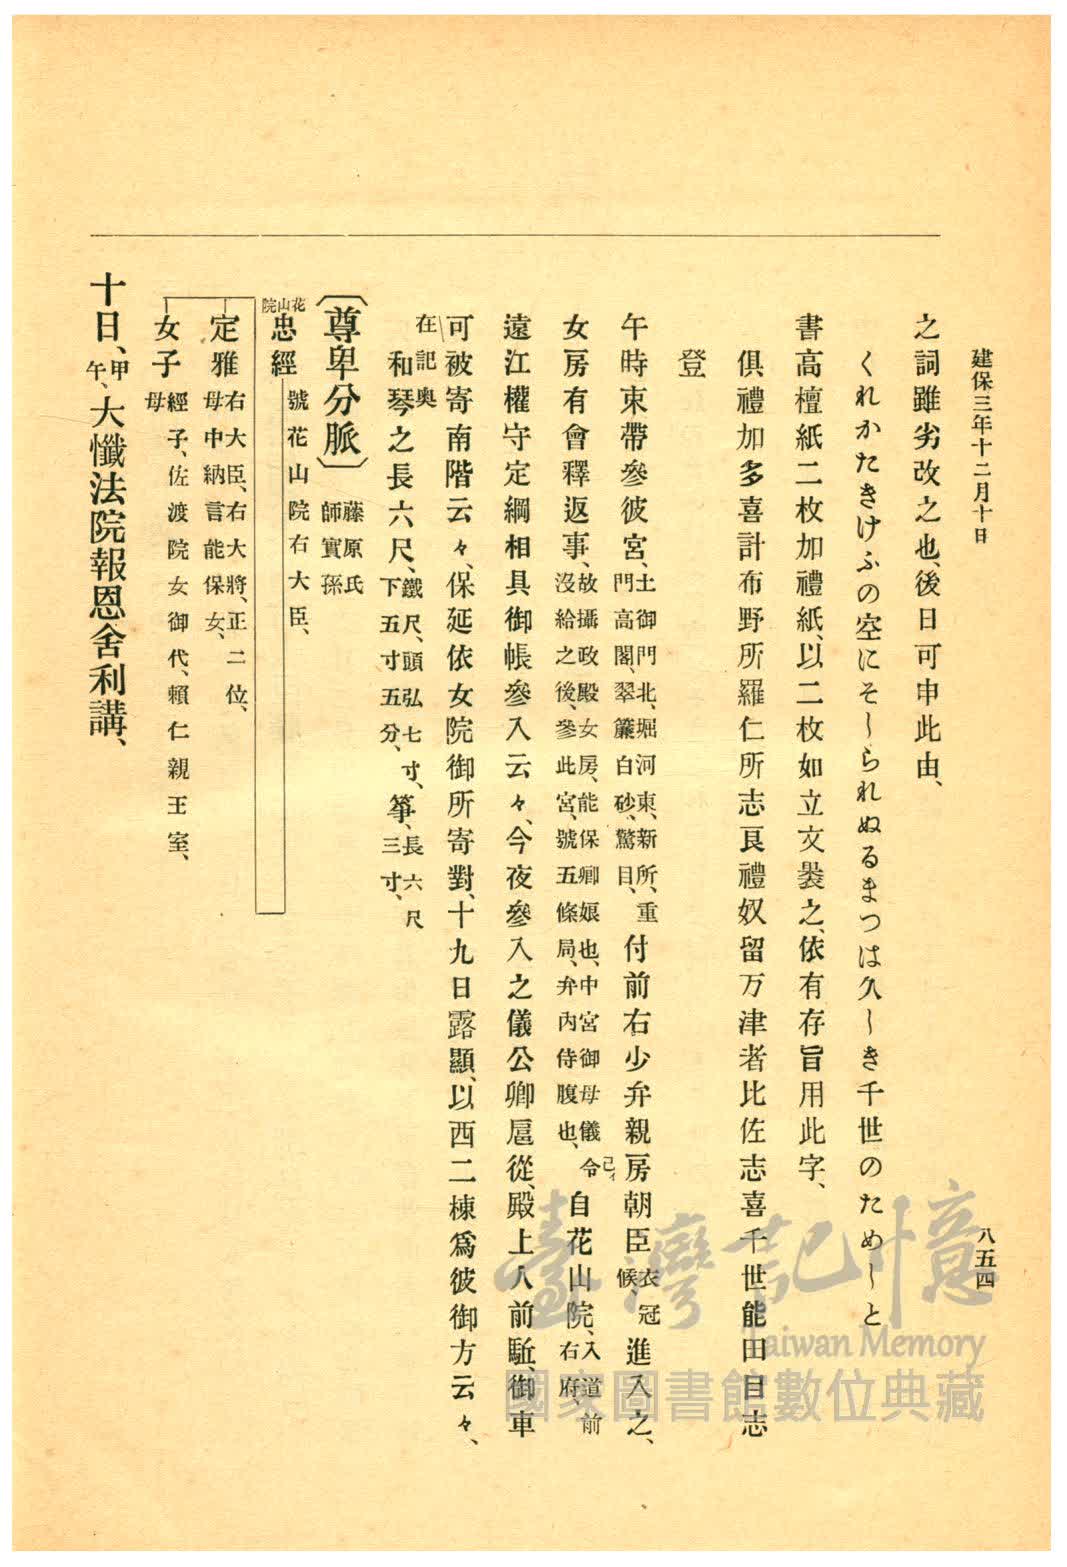 建保三年十二月十日
八五四
之詞雖劣改之也、後日可申此由、
くれかたきけふの空にそしられぬるまつは久しき千世のためしと
書高檀紙二枚加禮紙、以二枚如立文裝之、依有存旨用此字、
俱禮加多喜計布野所羅仁所志良禮奴留万津者比佐志喜千世能田目志
登
午時束帶參彼宮、土御門北、堀河東、新所、重
門高閣、翠簾白砂、驚目、付前右少弁親房朝臣衣冠
候、進入之、
女房有會釋返事、故攝政殿女房、能保卿娘也、中宮御母儀令
沒給之後、參此宮、號五條局、弁内侍腹也、
己イ
自花山院、入道前
右府、
遠江權守定綱相具御帳參入云々、今夜參入之儀公卿扈從、殿上人前駈、御車
可被寄南階云々、保延依女院御所寄對、十九日露顯、以西二棟爲彼御方云々、
在記奥
和琴之長六尺、鐵尺、頭弘七寸、
下五寸五分、箏、長六尺
三寸、
〔尊卑分脈〕藤原氏
師實孫
花山院
忠經號花山院右大臣、
定雅右大臣、右大將、正二位、
母中納言能保女、
女子經子、佐渡院女御代、賴仁親王室、
母
十日、甲
午、大懺法院報恩舍利講、
臺灣記憶
Taiwan Memory
國家圖書館數位典藏